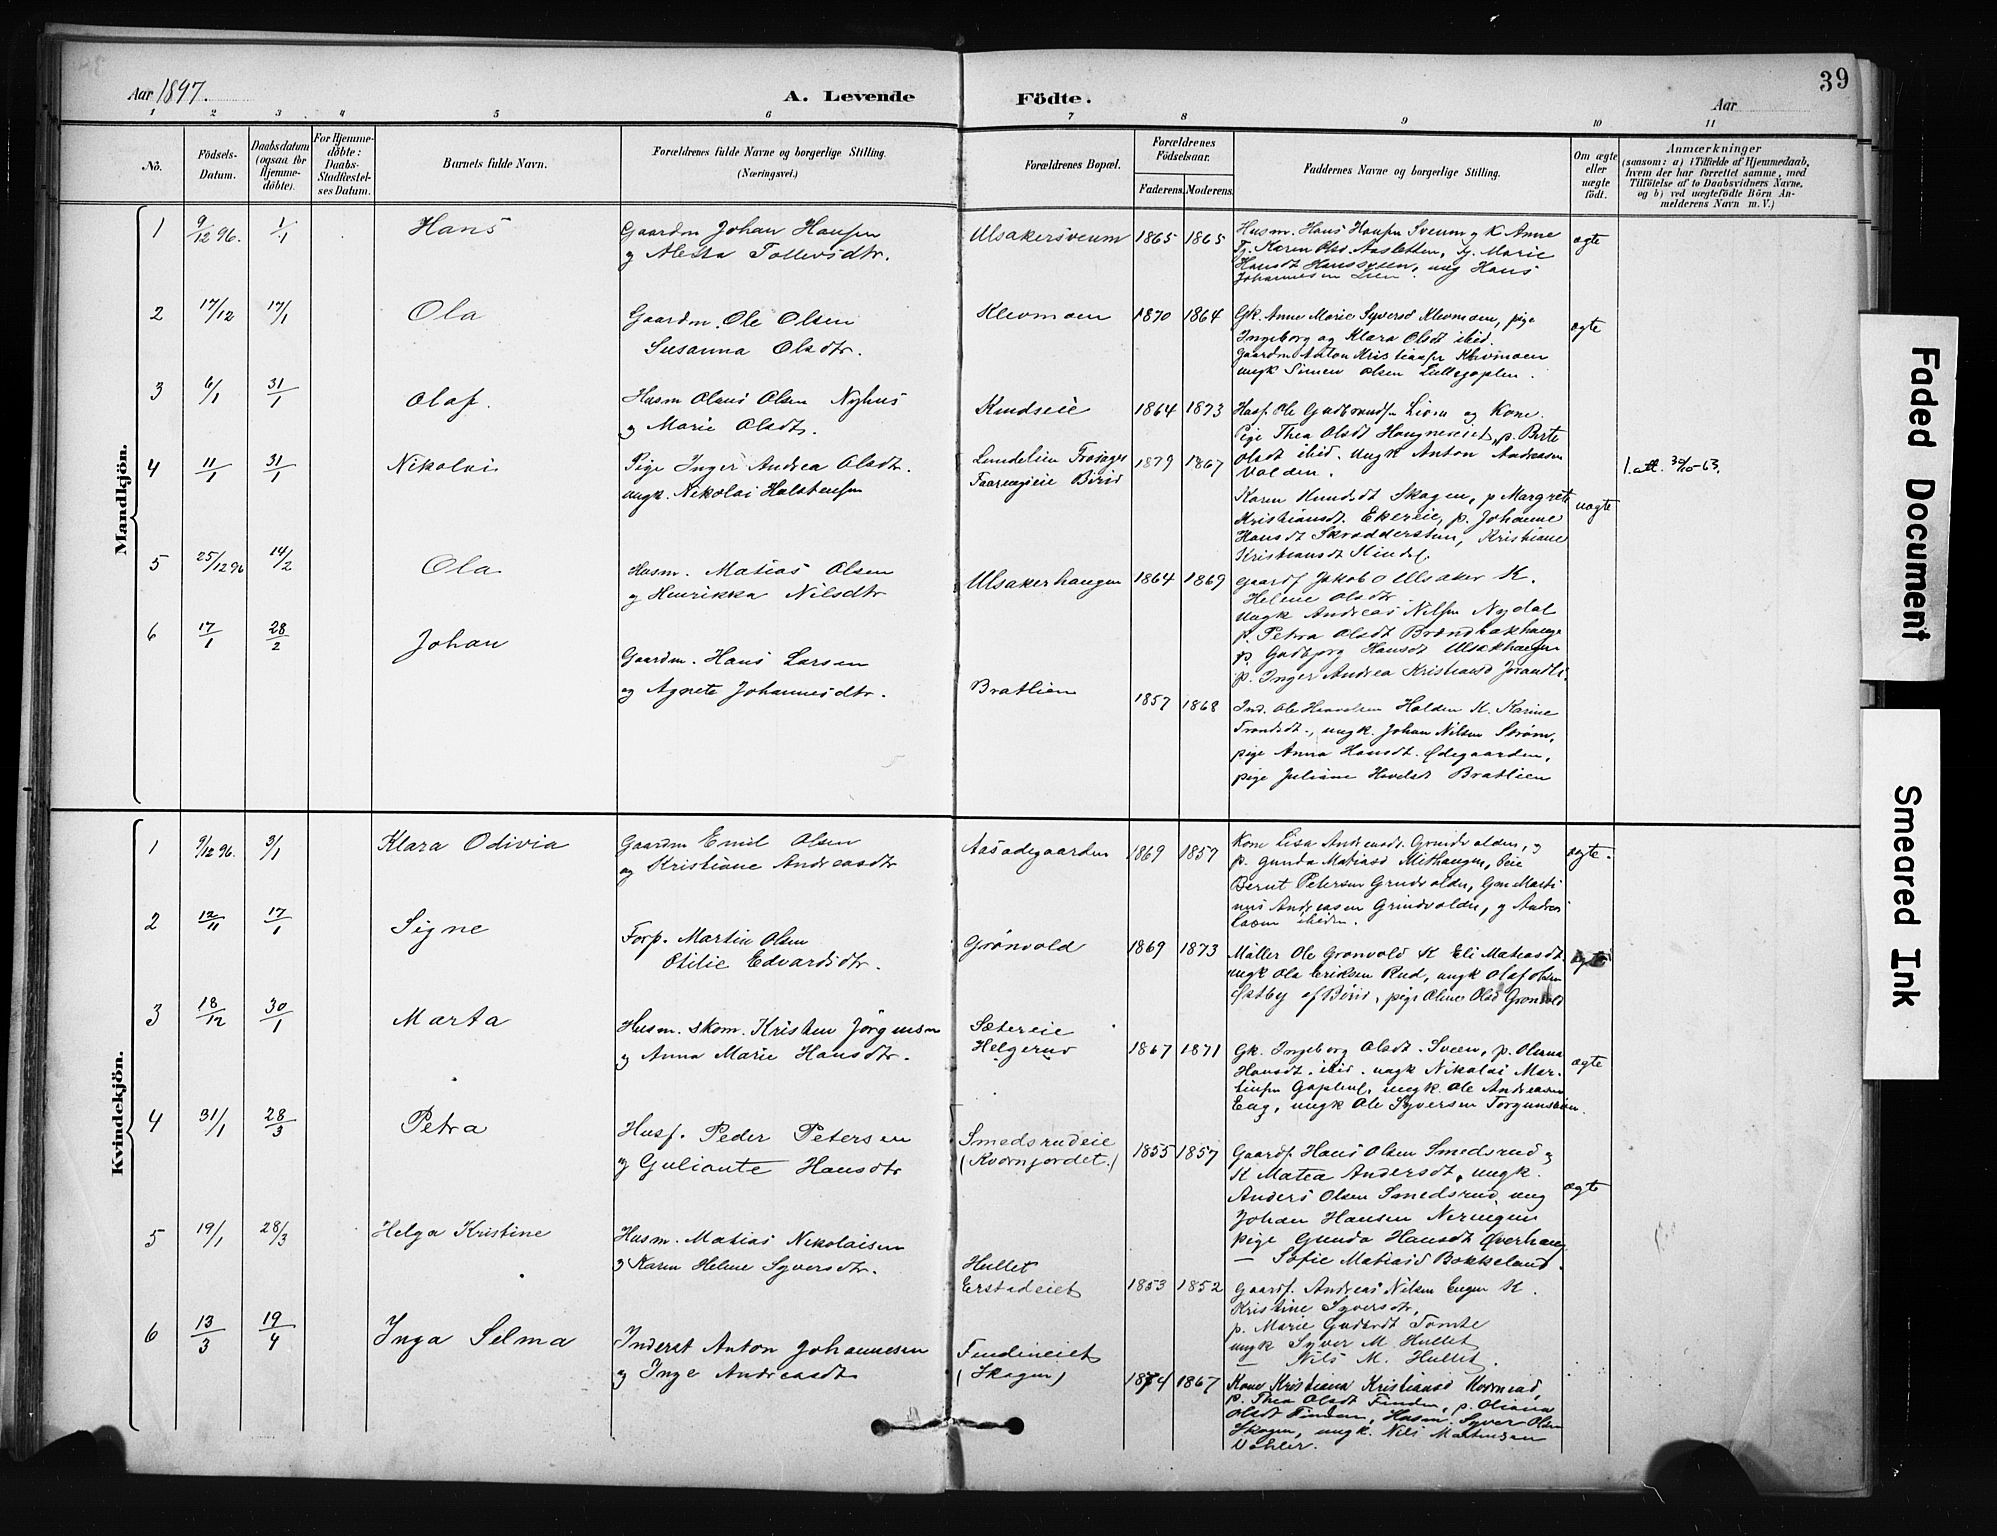 39
Aar 1897.
A. Levende Födte.
Aar
1 2 3 4 5 6 7 8 9 10 11
No.
Födsels-Datum.
Daabsdatum (ogsaa for Hjemme-döbte).
For Hjemme-döbte: Daabs-Stadfæstel-ses Datum.
Barnets fulde Navn.
Forældrenes fulde Navne og borgerlige Stilling. (Næringsvei.)
Forældrenes Bopæl.
Forældrenes Födselsaar.
Faderens. Moderens.
Faddernes Navne og borgerlige Stilling.
Om ægte eller uægte födt.
Anmærkninger
(saasom: a) i Tilfælde af Hjemmedaab, hvem der har forrettet samme, med Tilföielse af to Daabsvidners Navne, og b) ved uægtefödte Börn An-melderens Navn m. V.)
Mandkjön.
1 9/12 96. 1/1 Hans
Gaardm Johan Hansen
og Tollevsdtr.
Ulsakersveum 1865 1865
Husm. Hans Hansen Sveum og K. Anne
Johannesen Lien.
ægte
2 17/12 17/1 Ola
Gaardm. Ole Olsen
Susanna Olsdtr.
Klevmoen 1870 1864
Gk. Anne Marie Syversd Klevmoen, pige
Ingeborg og Klara Olsdt ibid.
Gaardm Anton Kristiansen Klevmoen
ungk Simen Olsen
ægte
3 6/1 31/1 Olaf.
Husm Olaus Olsen Nyhus
og Marie Olsdtr.
1864 1873
Husf. Ole Gudbrandsen Lien og Kone.
Pige Thea Olsdt Haugneseiet, p. Berte
4 11/1 31/1 Nikolai
Pige Inger Andrea Olsdt.
ungk. Nikolai Halstensen
Biri
1879 1867
Olsdt ibid. ungk Anton Andreasen
Volden.
1. att. 30/10-63.
Karen Knudsdt Skogen, p Margrete
Kristiansdt. Ekereie, p. Johanne
Hansdt Skrædderstuen, Kristiane
Kristiansdt
uægte
5 25/12 96 14/2 Ola
Husm. Matias Olsen
og Henrikka Nilsdtr
Ulsakerhaugen 1864 1869
Gaardf Jakob O Ulsaker K.
Helene Olsdtr
ungk Andreas Nilsen Nydal
p. Petra Olsdt Brændbakhauge
p. Gudbjørg Hansdt Ulsakhaugen
p. Inger Andrea Kristiansd
6 17/1 28/2 Johan
Gaardm. Hans Larsen
og Agnete Johannesdtr.
Bratlien 1857 1868
Ind. Ole Halden K. Karine
Trondsdt., ungk. Johan Nilsen Strøm,
pige Anna Hansdt. Ødegaarden,
pige Juliane Bratlien
Kvindekjön.
1 9/12 96. 3/1 Klara Odivia
Gaardm Emil Olsen
og Kristiane Andreasdtr
Aasødegaarden 1869 1857
Kone Lisa Andreasdt. Grindvolden, og
p. Gunda Matiasd
Bernt Petersen Grindvolden, Gm Marti
nus Andreasen Grindvolden, og Andreas
ægte.
2 12/11 17/1 Signe
Forp. Martin Olsen
Otilie Edvardsdtr.
Grønvold 1869 1873
Møller Ole Grønvold K Eli Matiasdt
ungk Ola Eriksen Rud, ungk Olaf Olsen
Østby af Biri, pige Oline Olsd Grønvold
ægte
3 18/12 30/1 Marta
Husm. skom. Kristen Jörgensen
og Anna Marie Hansdtr.
Sætereie
Helgerud
1867 1871
Gk. Ingeborg Olsdt. Sveen, p. Olerna
Hansdt. ibid. ungk Nikolai Mar-
tinsen ungk. Ole Andreasen
Eng, ungk Ole Syversen
ægte
4 31/1 28/3 Petra
Husf. Peder Petersen
og Guliante Hansdtr
Smedsrudeie
(Kvernjordet.)
1855 1857
Gaardf Hans Olsen Smedsrud og
K Matea Andersdt, ungk.
Anders Olsen Smedsrud, ung
Johan Hansen
pige Gunda Hansdt Øverhaug
— Sofie Matiasd Bakkeland.
ægte
5 19/1 28/3 Helga Kristine
Husm. Matias Nikolaisen
og Karen Helene Syversdtr.
Hullet
Erstadeiet
1853 1852
Gaardf. Andreas Nilsen Engen K.
Kristine Syversdtr,
p. Marie Tomte
ungk Syver M. Hullet
— Nils M. Hullet.
6 13/3 19/4 Inga Selma
Inderst Anton Johannesen
og Inge Andreasdtr
(Skogen)
1874 1867
Kone Kristiana Kristiansd
p. Thea Olsdt Finden, p. Oliana
Olsdt Finden, Husm. Syver Olsen
Skogen, ungk. Nils Martinsen
Faded Document
Smeared Ink